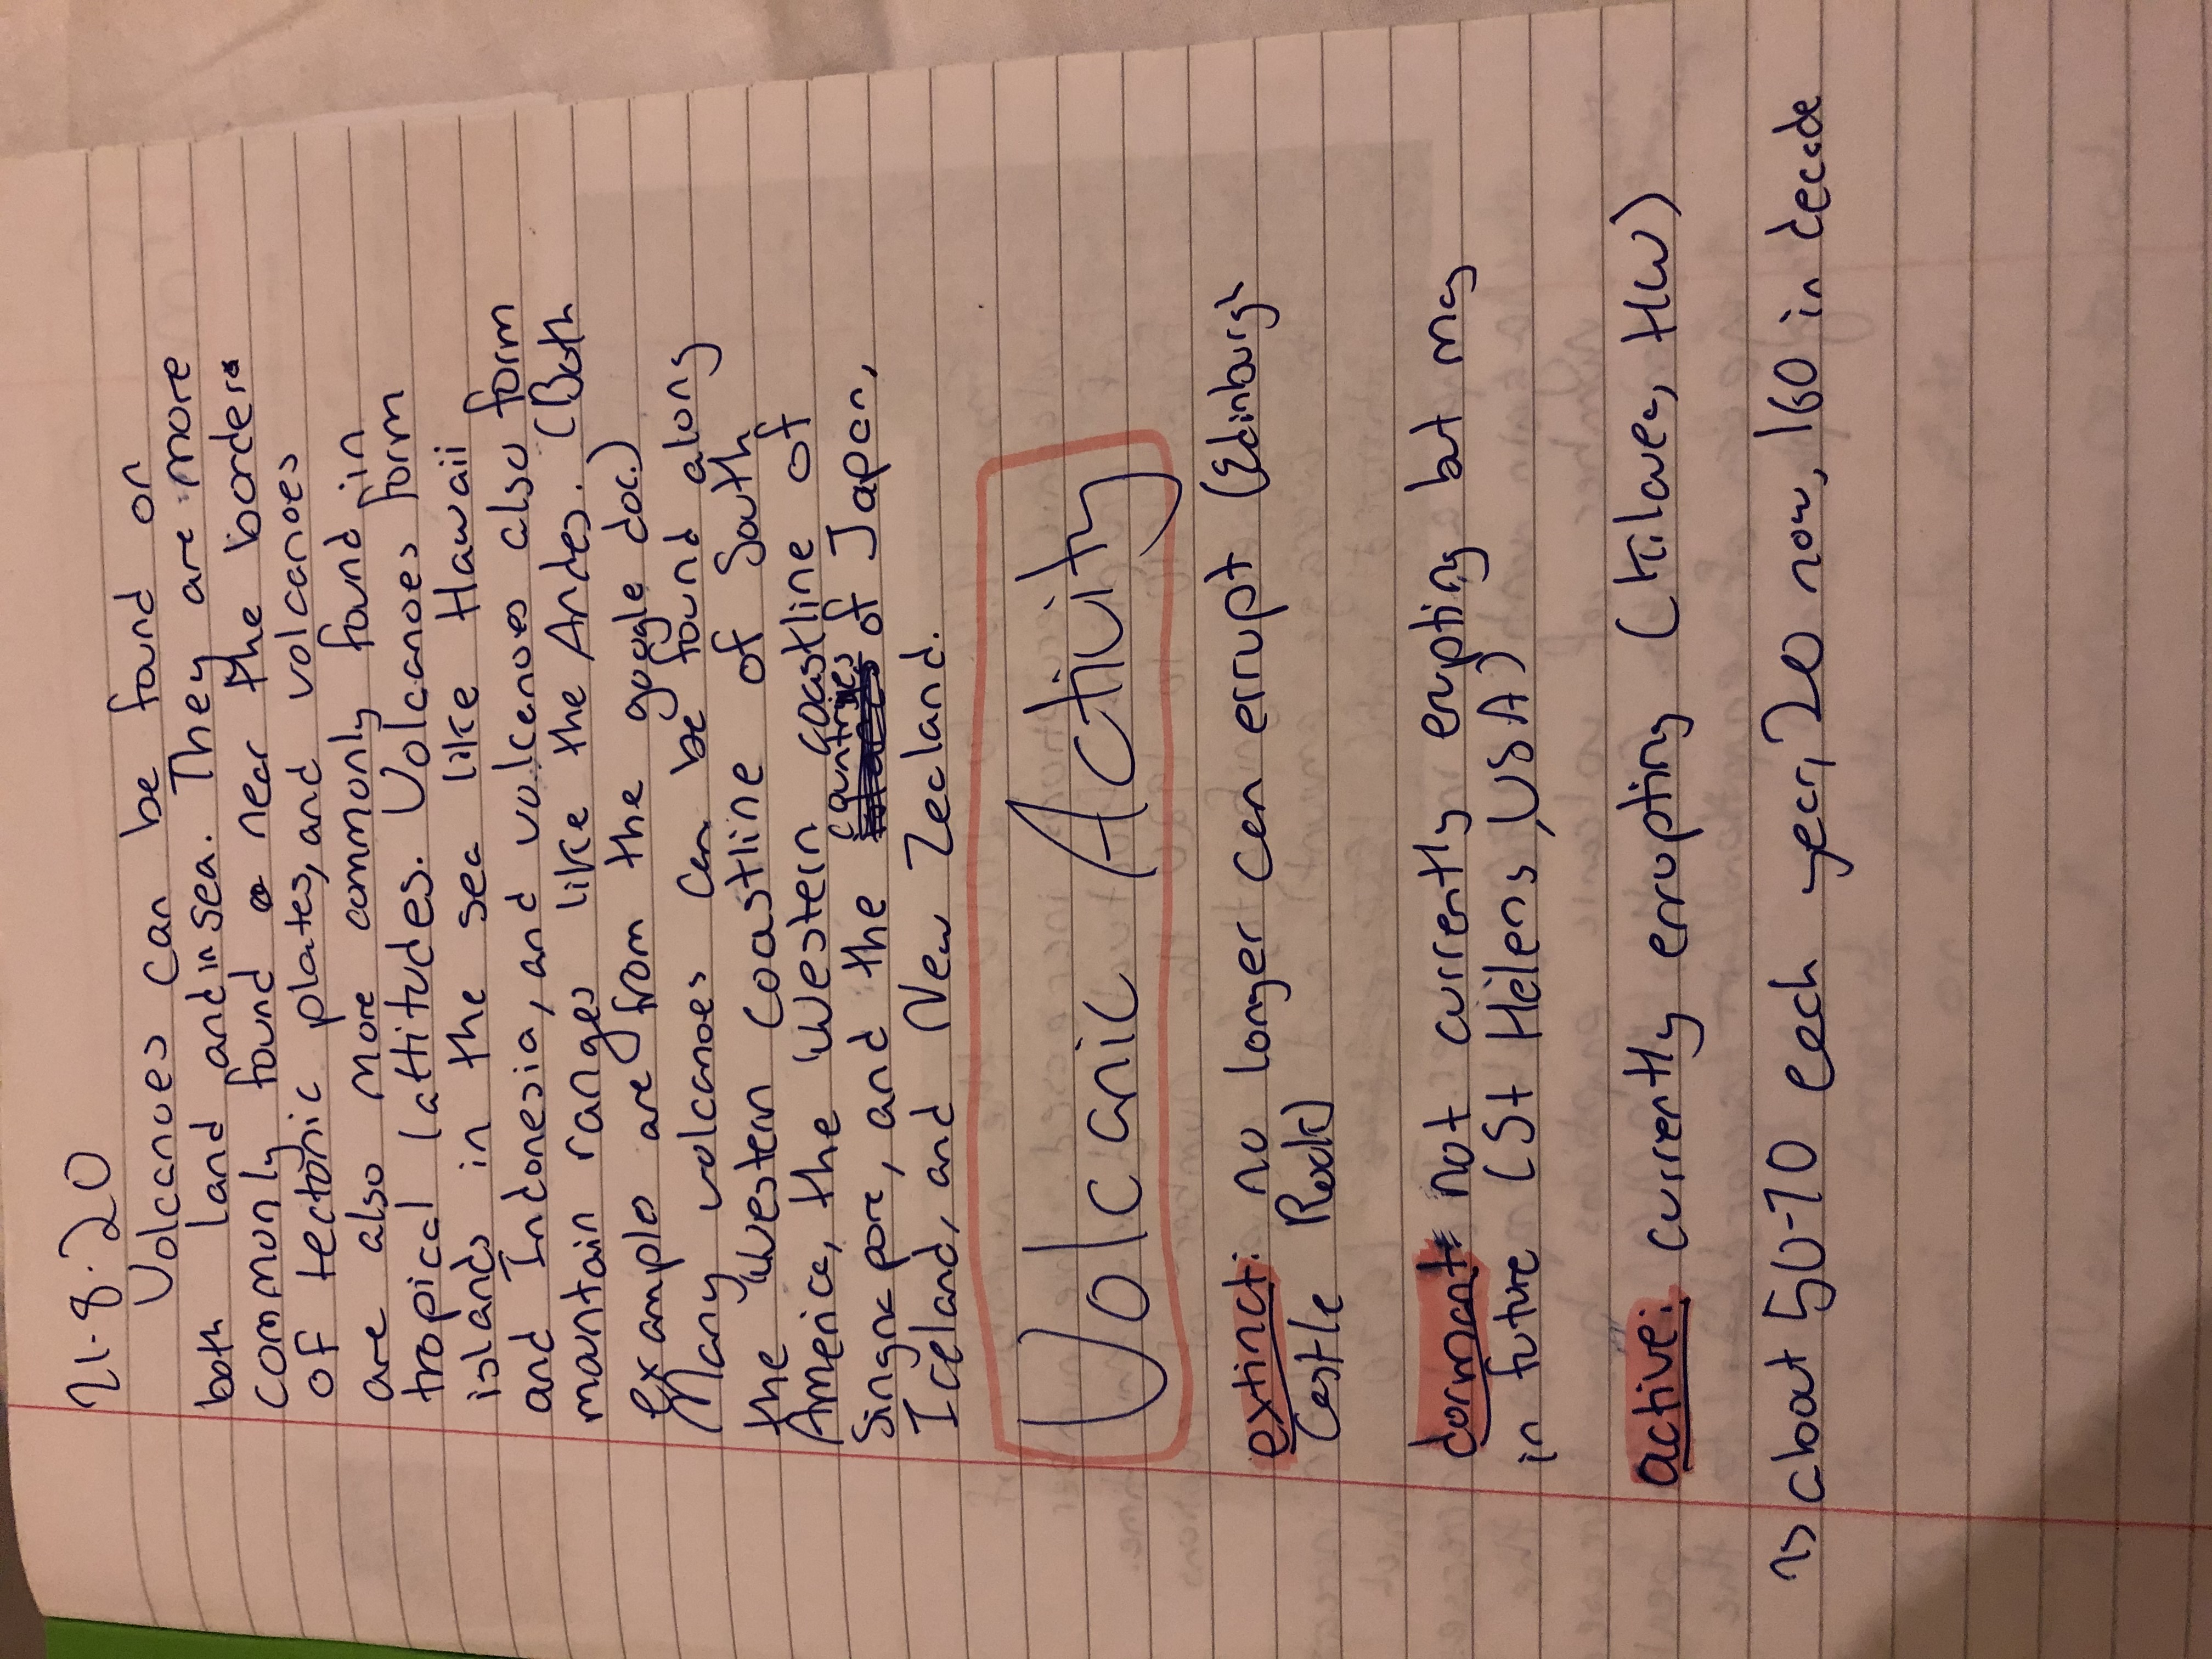 21.8.20
Volcanoes can be found on
both land and in sea. They are more
commonly found near the borders
of tectonic plates, and volcanoes
are also more commonly found in
tropical lattitudes. Volcanoes form
islands in the sea like Hawaii
and Indonesia, and volcanoes also form
mountain ranges like the Andes. (Both
examples are from the google doc.)
Many volcanoes can be found along
the Western coastline of South
America, the Western coastline of
Singnapore, and the countries of Japan,
Iceland, and New Zealand.
Volcanic Activity
extinct: no longer can errupt (Edinburgh
Castle Rock)
dormant: not currently erupting but may
in future (St Helens, USA)
active: currently errupting (Kilauea, HW)
about 50-70 each year, 20 now, 160 in decade